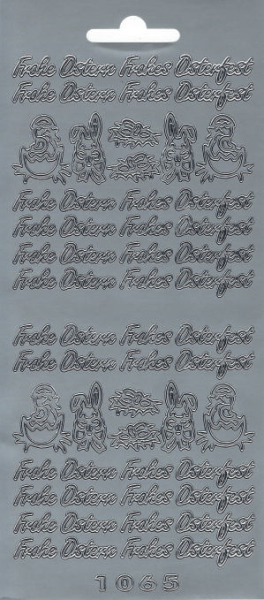 Frohe Ostern Frohes Osterfest
Frohe Ostern Frohes Osterfest
Frohe Ostern Frohes Osterfest
Frohe Ostern Frohes Osterfest
Frohe Ostern Frohes Osterfest
Frohe Ostern Frohes Osterfest
Frohe Ostern Frohes Osterfest
Frohe Ostern Frohes Osterfest
Frohe Ostern Frohes Osterfest
Frohe Ostern Frohes Osterfest
Frohe Ostern Frohes Osterfest
Frohe Ostern Frohes Osterfest
1065